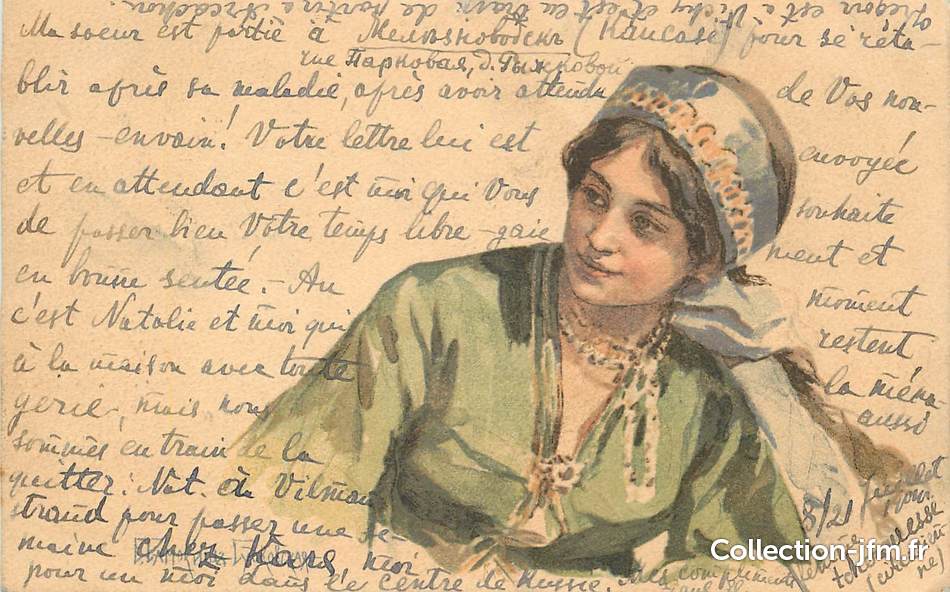 Ma soeur est partie à Мелѣзноводскъ (Kaucase) pour se réta-
rue Парковая, д. Рыжковой
blir après sa maladie, après avoir attendu de Vos nou-
velles - envain! Votre lettre lui est envoyée
et en attendant c'est moi qui Vous souhaite
de passer bien Votre temps libre - gaiement et
en bonne sentée. - Au moment
c'est Natalie et moi qui restent
à la maison avec toute la ména-
gerie, mais nous aussi
sommes en train de la
quitter: Nat. à Vilman
strand pour passer une se-
maine chez Hans, moi
pour un moi dans le centre de Russie. Mes compliments
8/21 juillet
jour
Collection-jfm.fr